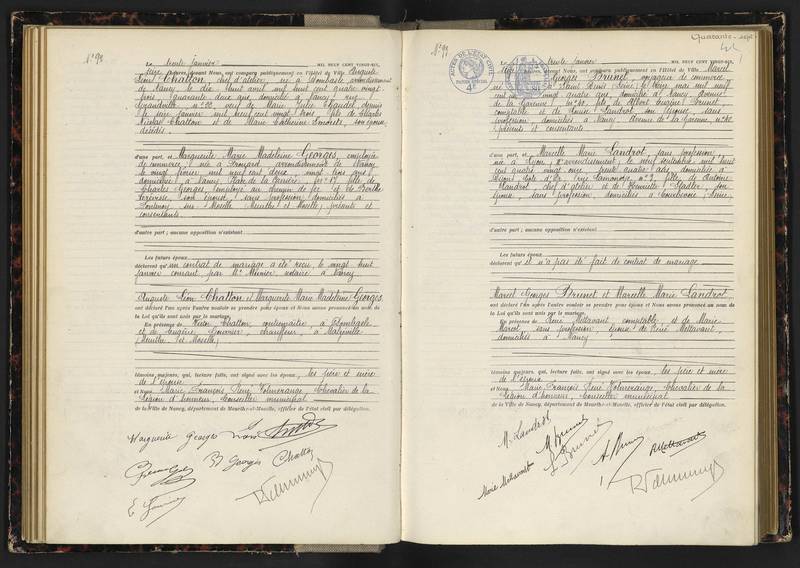 N° 98
Le trente janvier MIL NEUF CENT VINGT-SIX,
heures, devant Nous, ont comparu publiquement en l'Hôtel de Ville, Auguste
Léon Chatton, chef d'atelier, né à Dombasle, arrondissement
de Nancy, le dix huit avril mil huit cent quatre vingt
trois, quarante deux ans, domicilié à Nancy, rue
Grandville, n° 22, veuf de Marie Julie Chaudel, depuis
le seize janvier mil neuf cent vingt trois, fils de Charles
Nicolas Chatton et de Marie Catherine, son épouse,
décédés
d'une part, et Marguerite Marie Madeleine Georges, employée
de commerce, née à Frouard, arrondissement de Nancy,
le vingt février mil neuf cent deux, vingt trois ans,
domiciliée à Nancy, fille de
Charles Georges, employé au chemin de fer, et de Berthe
son épouse, sans profession, domiciliés à
Pontenoy sur Moselle (Meurthe et Moselle), présents et
consentants
d'autre part; aucune opposition n'existant
Les futurs époux
déclarent qu'un contrat de mariage a été reçu le vingt huit
janvier courant par Me Meunier, notaire à Nancy
Auguste Léon Chatton et Marguerite Marie Madeleine Georges
ont déclaré l'un après l'autre vouloir se prendre pour époux et Nous avons prononcé au nom de
la Loi qu'ils sont unis par le mariage.
En présence de Victor Chatton, contremaître, à Dombasle
et de Eugène Bouvier, chauffeur, à Malzéville
(Meurthe et Moselle)
témoins majeurs, qui, lecture faite, ont signé avec les époux, les père et mère
de l'épouse
et Nous Marie François René Volmerange, Chevalier de la
Légion d'honneur, Conseiller municipal
de la Ville de Nancy, département de Meurthe-et-Moselle, officier de l'état civil par délégation.
Marguerite Georges
B Georges Chatton
N° 99
Quarante-sept
ACTES DE L'ETAT CIVIL
Le trente janvier MIL NEUF CENT VINGT-SIX,
heures, devant Nous, ont comparu publiquement en l'Hôtel de Ville, Marcel
Georges Brunet, voyageur de commerce,
né à Saint Denis (Seine), le mai mil neuf
cent un, vingt quatre ans, domicilié à Nancy, Avenue
de la Garenne, n° 40, fils de Albert Brunet,
comptable, et de Louise Landrot, son épouse, sans
profession, domiciliés à Nancy, Avenue de la Garenne, n° 40,
présents et consentants
d'une part, et Marcelle Marie Landrot, sans profession,
née à Lyon, arrondissement, le neuf septembre mil huit
cent quatre vingt onze, trente quatre ans, domiciliée à
n° 2, fille de Antoine
Landrot, chef d'atelier, et de Henriette Stadler, son
épouse, sans profession, domiciliés à Courbevoie (Seine)
d'autre part; aucune opposition n'existant
Les futurs époux
déclarent qu'il n'a pas été fait de contrat de mariage
Marcel Georges Brunet et Marcelle Marie Landrot
ont déclaré l'un après l'autre vouloir se prendre pour époux et Nous avons prononcé au nom de
la Loi qu'ils sont unis par le mariage.
En présence de René Mettavant, comptable, et de Marie
Marcot, sans profession, épouse de René Mettavant,
domiciliés à Nancy
témoins majeurs, qui, lecture faite, ont signé avec les époux, les père et mère
de l'époux
et Nous Marie François René Volmerange, Chevalier de la
Légion d'honneur, Conseiller municipal
de la Ville de Nancy, département de Meurthe-et-Moselle, officier de l'état civil par délégation.
M. Landrot
M. Brunet
L. Brunet
Marie Mettavant
R Mettavant